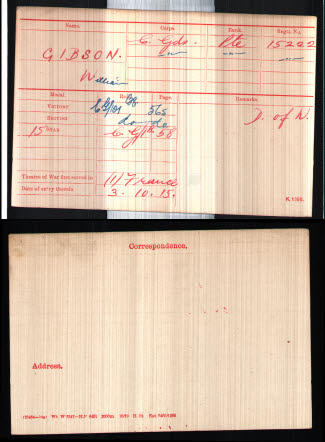 Name. Corps. Rank. Regtl. No.
GIBSON. C. Gds. Pte 15222
William " " "
Medal. Roll. Page. Remarks.
VICTORY 565 D. of W.
BRITISH do do
15 STAR 58
Theatre of War first served in (1) France
Date of entry therein 3.10.15.
K 1380.
Correspondence.
Address.